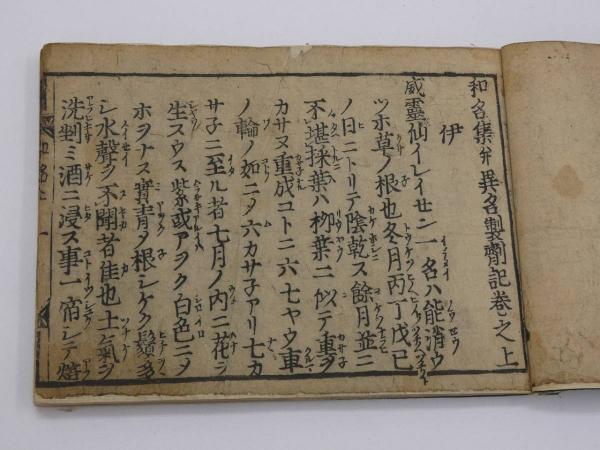 和名集并異名製劑記卷之上
伊
威靈仙イレイセン一名ハ能消ウ
ツホ草ノ根也冬月丙丁戊己
ノ日ニトリテ陰乾ス餘月並ニ
不堪採葉ハ栁葉ニ似テ重ヲ
カサヌ重成コトニ六七ヤウ車
ノ輪ノ如ニメ六カサ子アリ七カ
サ子ニ至ル者七月ノ内ニ花ヲ
生スウス紫或アヲク白色ニメ
ホヲナス實青ク根シケク鬚多
シ水聲ヲ不聞者佳也土氣ヲ
洗剉ミ酒ニ浸ス事一宿シテ焙